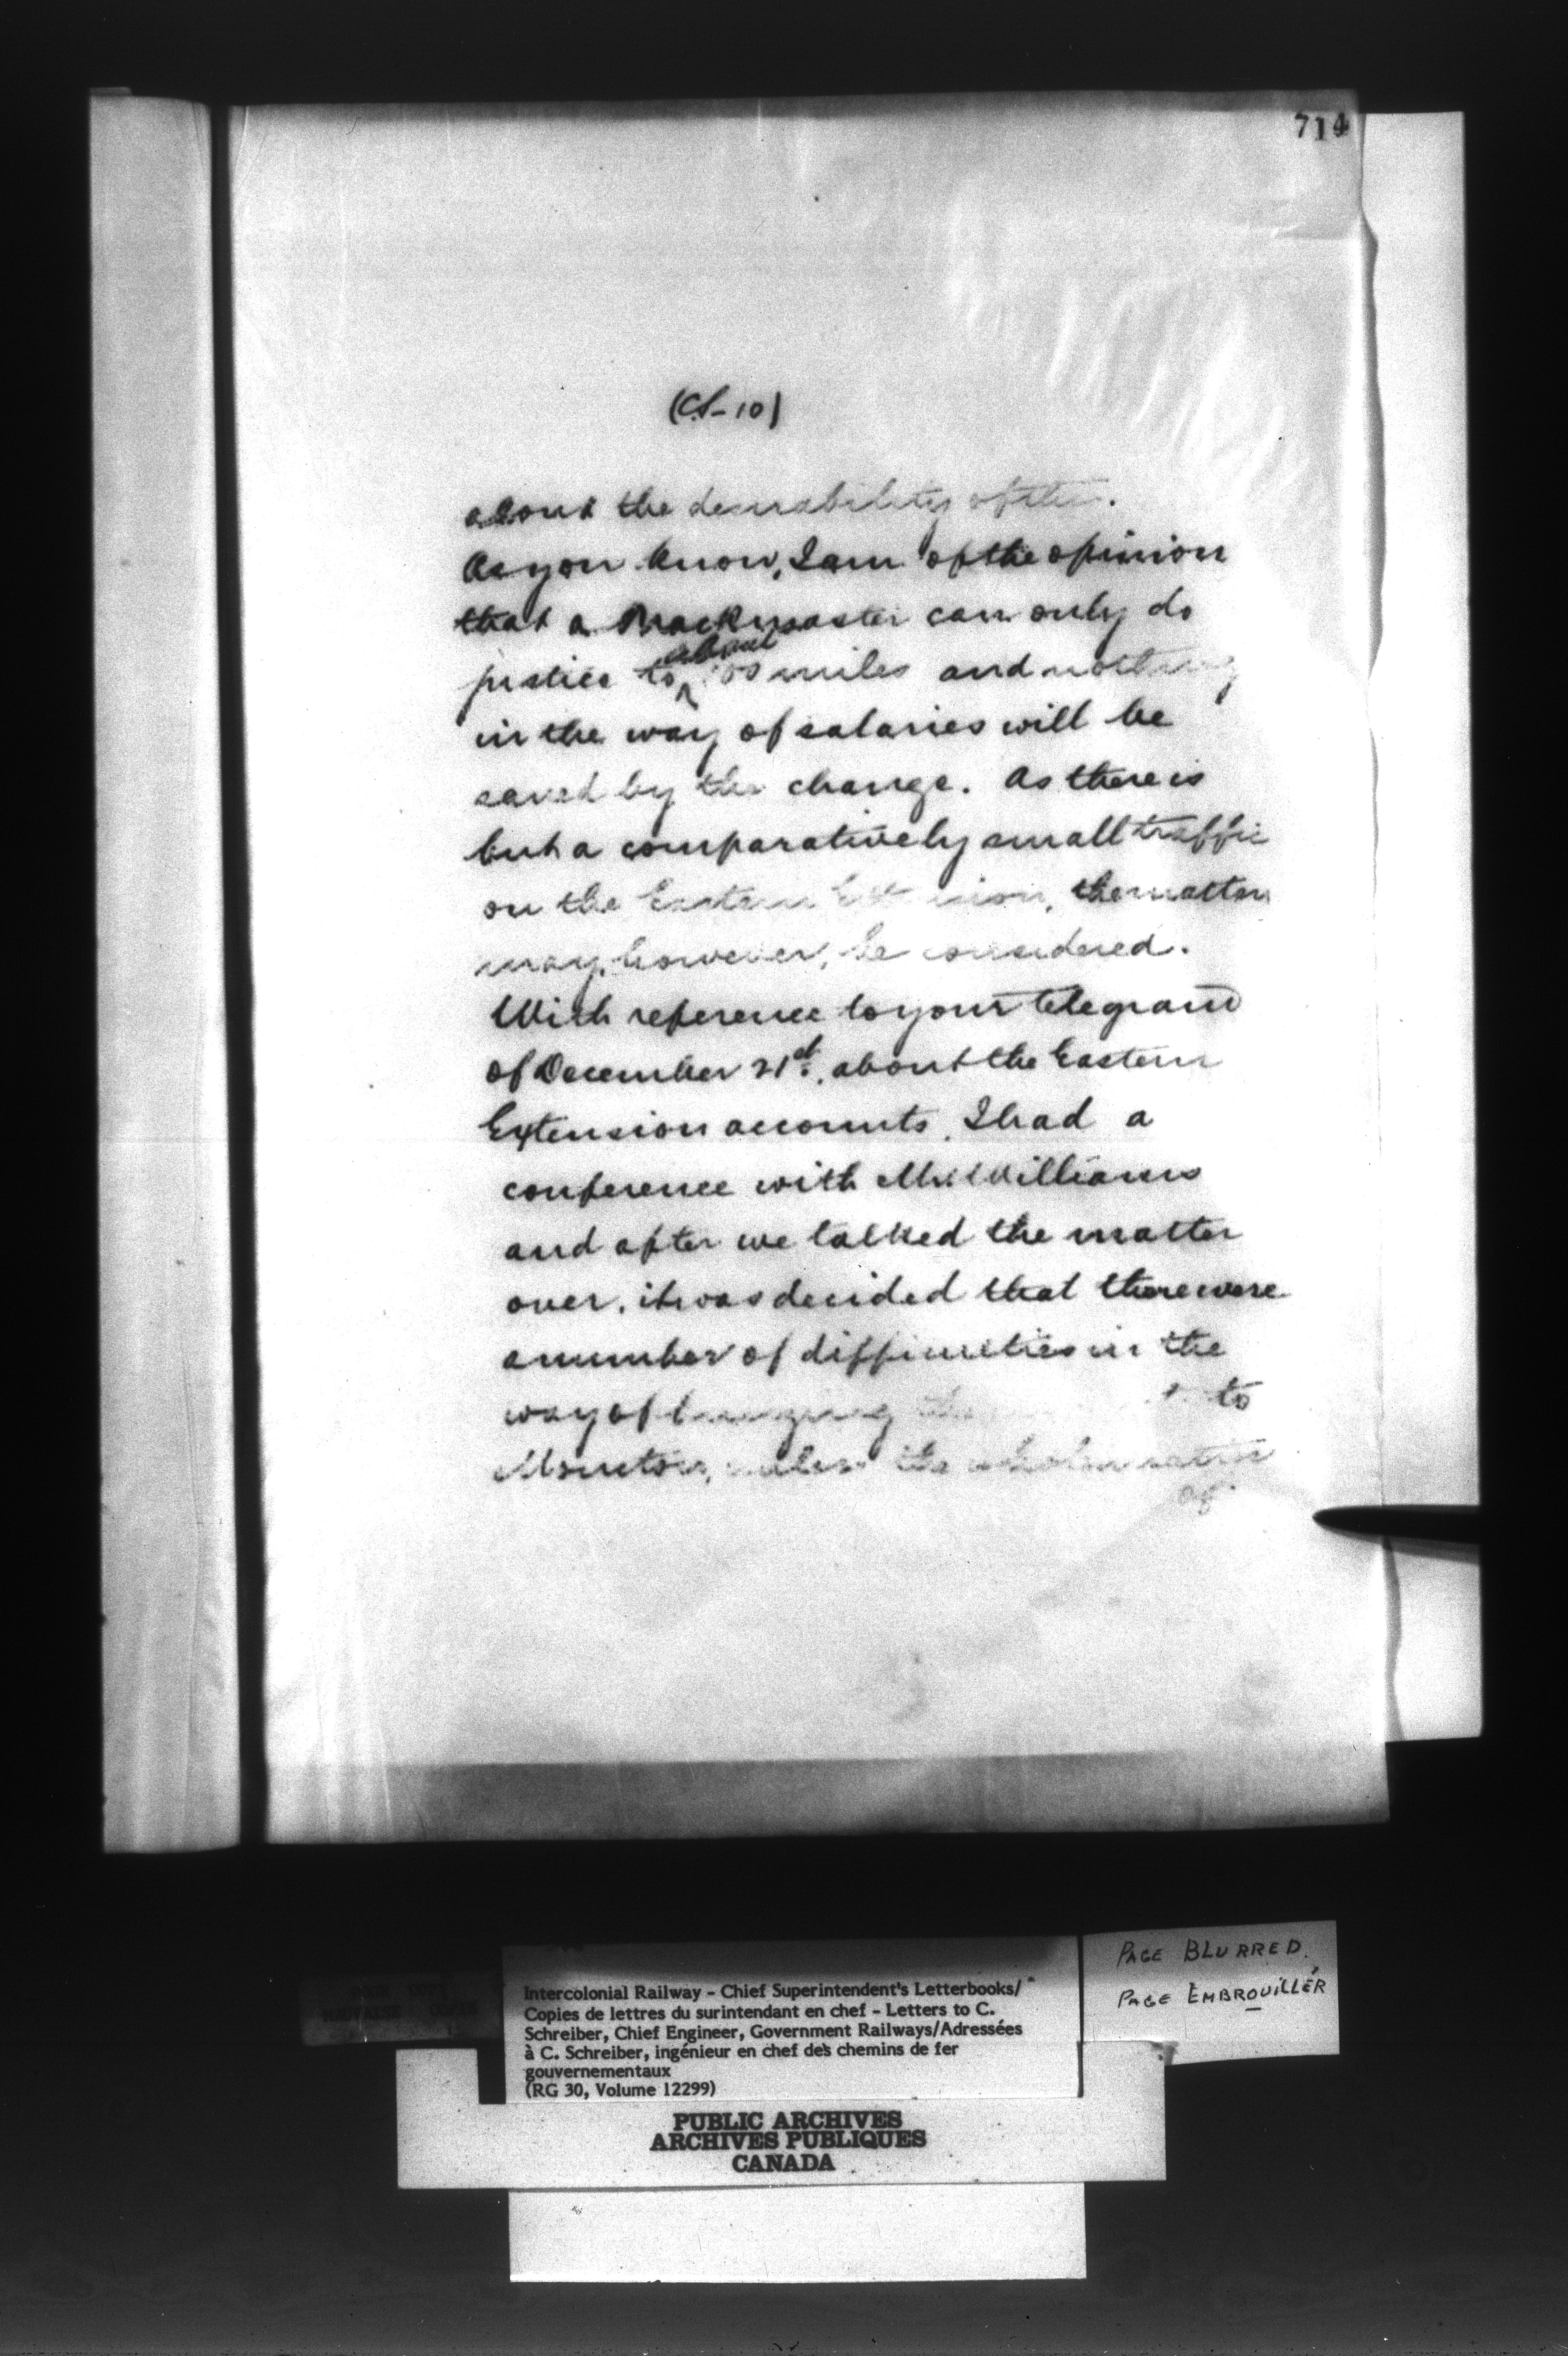 714
(C.S-10)
about the desirability of this.
As you know, I am of the opinion
that a Trackmaster can only do
about
justice to 100 miles and nothing
in the way of salaries will be
saved by the change. As there is
but a comparatively small traffic
on the Eastern Extension, the matter
may, however, be considered.
With reference to your telegram
of December 21st, about the Eastern
Extension accounts, I had a
conference with Mr. Williams
and after we talked the matter
over, it was decided that there were
a number of difficulties in the
way of bringing the to
Moncton, unless the whole matter
of
Intercolonial Railway - Chief Superintendent's Letterbooks/
Copies de lettres du surintendant en chef - Letters to C.
Schreiber, Chief Engineer, Government Railways/Adressées
à C. Schreiber, ingénieur en chef des chemins de fer
gouvernementaux
(RG 30, Volume 12299)
PAGE BLURRED.
PAGE EMBROUILLÉR
PUBLIC ARCHIVES
ARCHIVES PUBLIQUES
CANADA